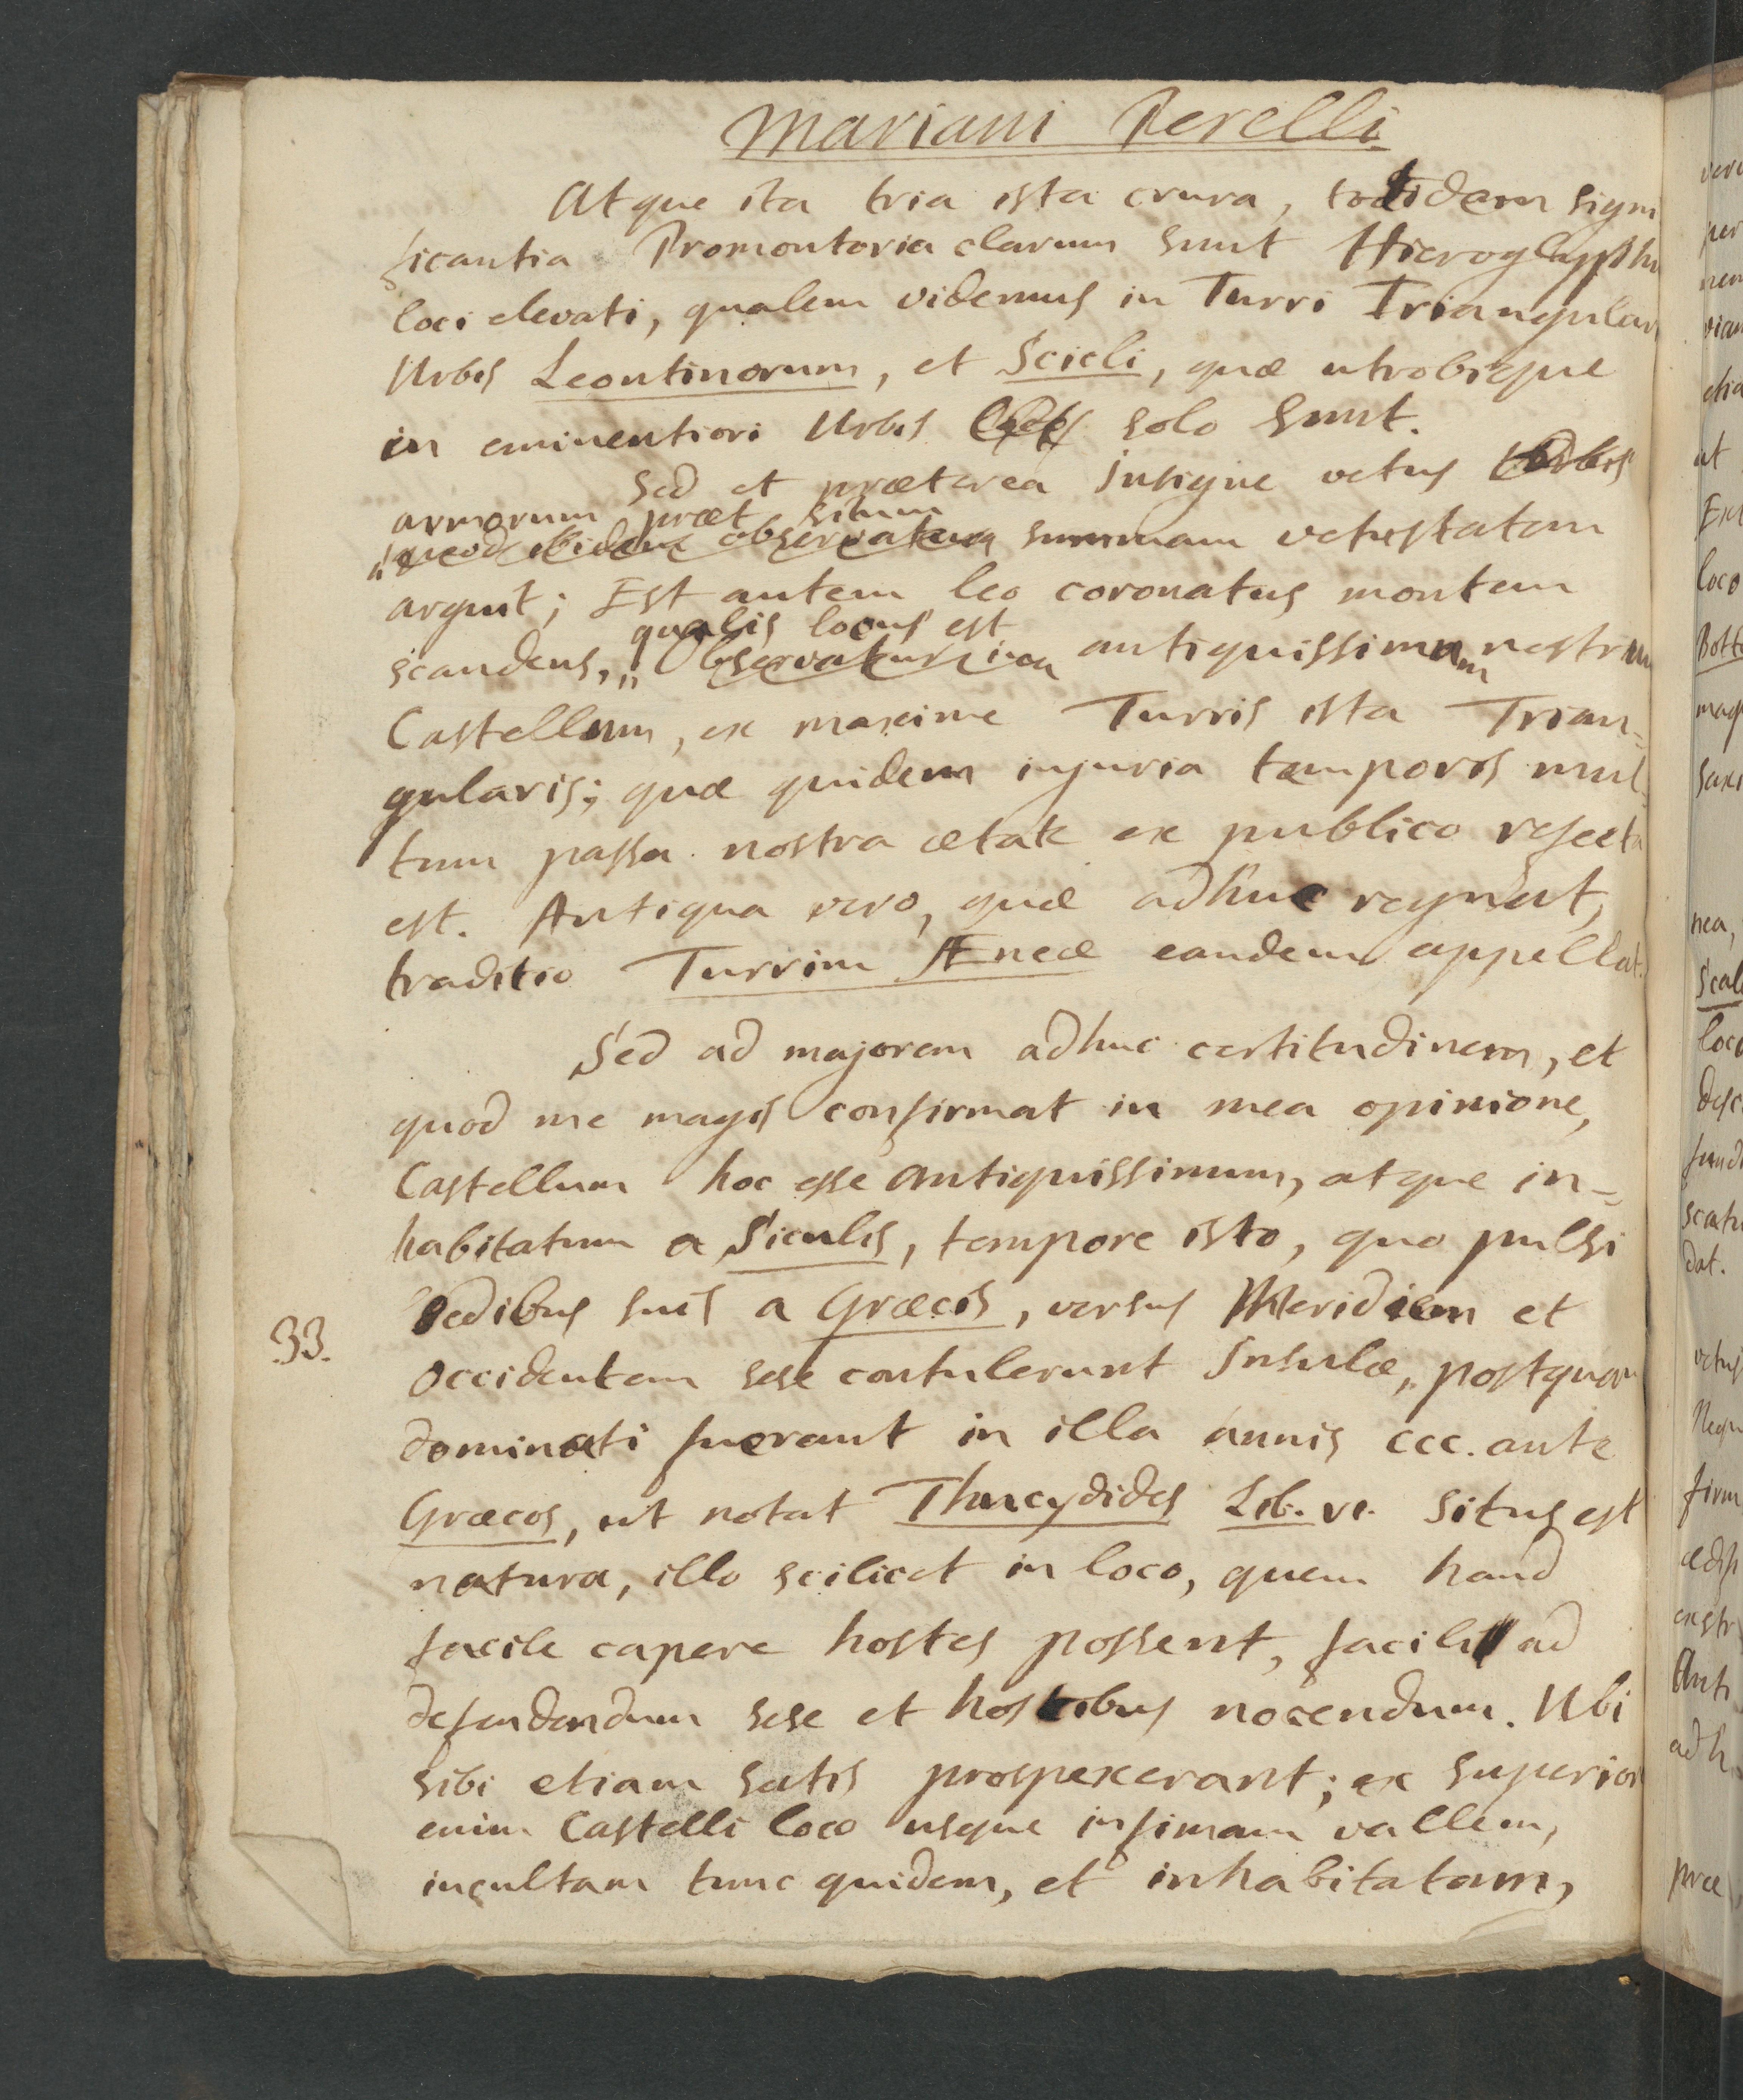 Mariani Perelli
Atque ita tria ista crura, totidem signi
ficantia Promontoria clarum sunt Hieroglyphi
loci elevati, qualem videmus in Turri Triangulari
Urbis Leontinorum, et Scicli, quæ utrobique
in eminentiori Urbis solo sunt.
Sed et præterea Insigne vetus Urbis
armorum præt situm
quod ibidem observatur summam vetustatem
arguit; Est autem leo coronatus montem
qualis locus est
scandens, Observatur in antiquissimum nostrum
Castellum, ex maxime Turris ista Trian=
gularis; quæ quidem injuria temporis mul=
tum passa nostra ætate ex publico refecta
est. Antiqua vero, quæ adhuc regnat,
traditio Turrim Æneæ eandem appellat.
Sed ad majorem adhuc certitudinem, et
quod me magis confirmat in mea opinione,
Castellum hoc esse antiquissimum, atque in=
habitatum a Siculis, tempore isto, quo pulsi
Sedibus suis a Græcis, versus Meridiem et
33.
Occidentem sese contulerunt Insulæ, postquam
dominati fuerant in illa annis ccc. ante
Græcos, ut notat Thucydides Lib. VI. Situs est
natura, illo scilicet in loco, quem haud
facile capere hostes possent, facilis ad
defendendum sese et hostibus nocendum. Ubi
sibi etiam satis prospexerant; ex superiori
enim Castelli loco usque infimam vallem,
incultam tunc quidem, et inhabitatam,